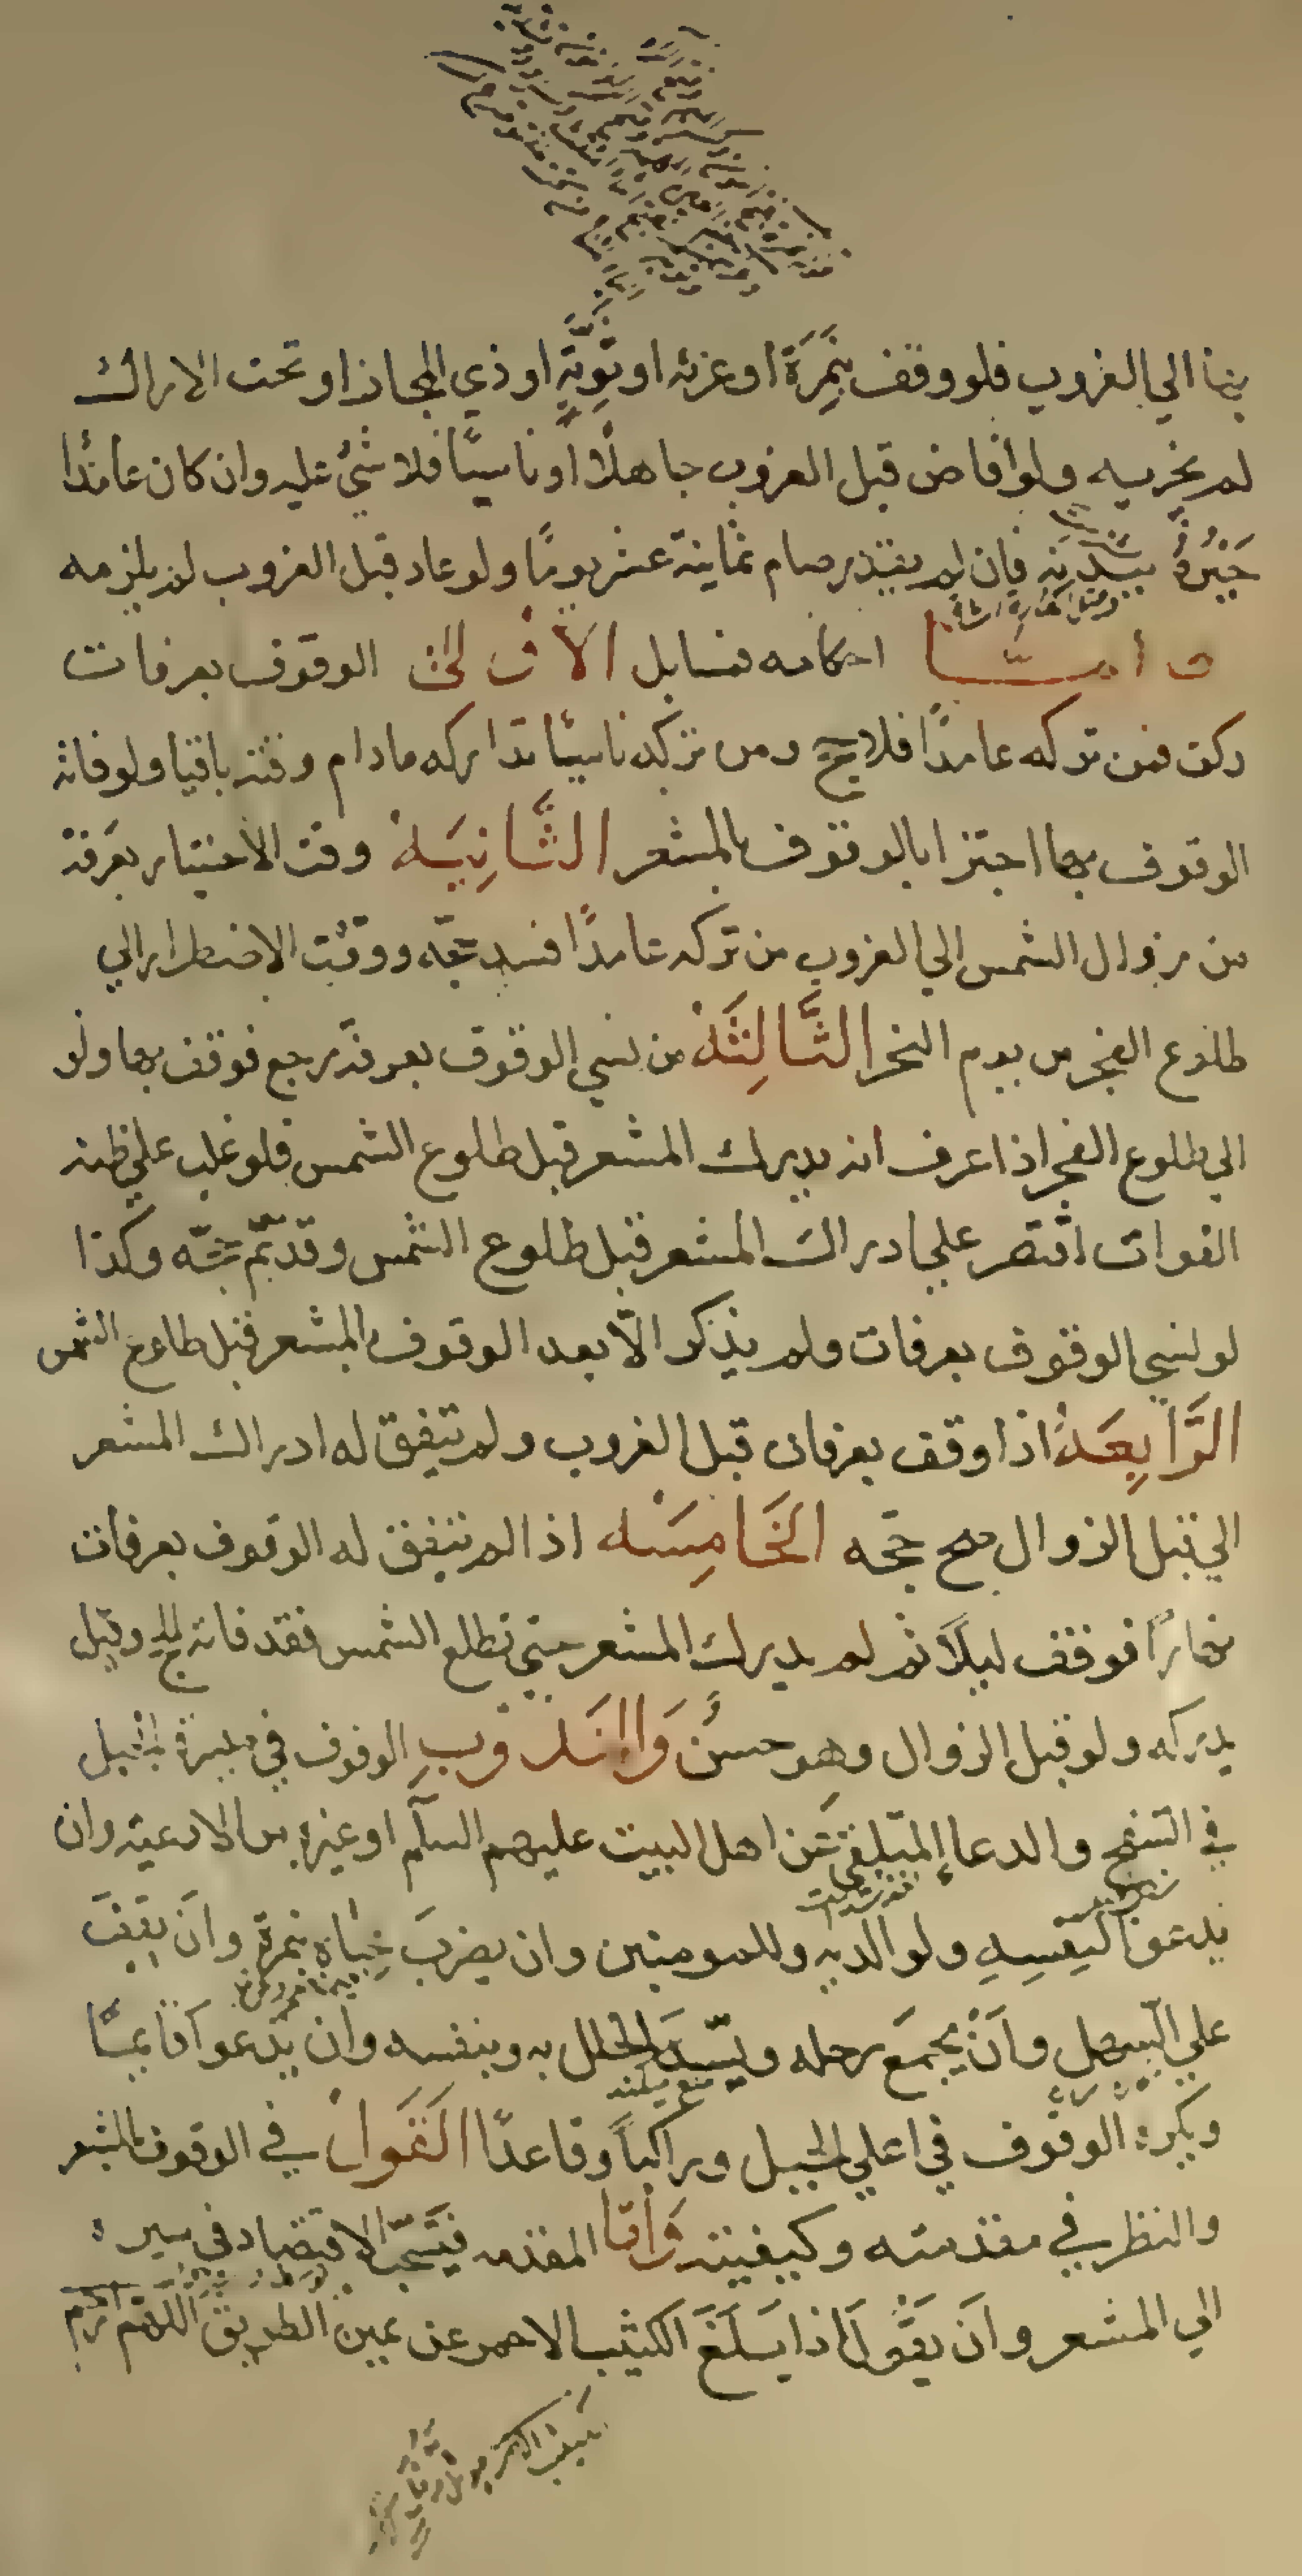 بها الي الغروب فلو وقف بنَمِرَة او عرنه او ثَوِيَّةٍ او ذي المجاز او تحت الاراك
لم يجزيه ولو افاض قبل الغروب جاهلًا او ناسيًا فلا شئ عليه وان كان عامدًا
جَبَرَهُ ببدنه فان لم يقدر صام ثمانية عشر يومًا ولو عاد قبل الغروب لم يلزمه
وامّا احكامه فمسايل الاولى الوقوف بعرفات
ركن فمن تركه عامدًا فلا حج ومن تركه ناسيًا تداركه مادام وقته باقيا ولو فاته
الوقوف بها اجتزا بالوقوف بالمشعر الثَّانِيَة وقت الاختيار بعرفة
من زوال الشمس الي الغروب من تركه عامدًا فسد حجّه ووقت الاضطرار الي
طلوع الفجر من يوم النحر الثَّالِثَة من نسي الوقوف بعرفة رجع فوقف بها ولو
الي طلوع الفجر اذا عرف انه يدرك المشعر قبل طلوع الشمس فلو غلب علي ظنه
الفوات اقتصر علي ادراك المشعر قبل طلوع الشمس وقد تمّ حجّه وكذا
لو نسي الوقوف بعرفات ولم يذكر الّا بعد الوقوف بالمشعر قبل طلوع الشمس
الرَّابِعَة اذا وقف بعرفات قبل الغروب ولم يتفق له ادراك المشعر
الي قبل الزوال صح حجه الخَامِسَه اذا لم يتفق له الوقوف بعرفات
نهارًا فوقف ليلًا ثم لم يدرك المشعر حتى تطلع الشمس فقد فاته الحج وقيل
يدركه ولو قبل الزوال وهو حسن وَالمَندوب الوقوف في ميسرة الجبل
في السفح والدعا المتلقي عَن اهل البيت عليهم السلم او غيره من الادعية وان
يدعو لنفسه ولوالديه وللمومنين وان يضربَ خباه بنمرة وان يقفَ
علي السهل وان يجمعَ رحله ويسدَّ الخلل به وبنفسه وان يدعو قايمًا
ويكره الوقوف في اعلي الجبل وراكبًا وقاعدًا القول في الوقوف بالمشعر
والنظر في مقدمته وكيفيته وامّا المقدمه فيستحبّ الاقتصاد في سيره
الي المشعر وان يقول اذا بلغَ الكثيب الاحمر عن يمين الطريق اللّهم ارحم